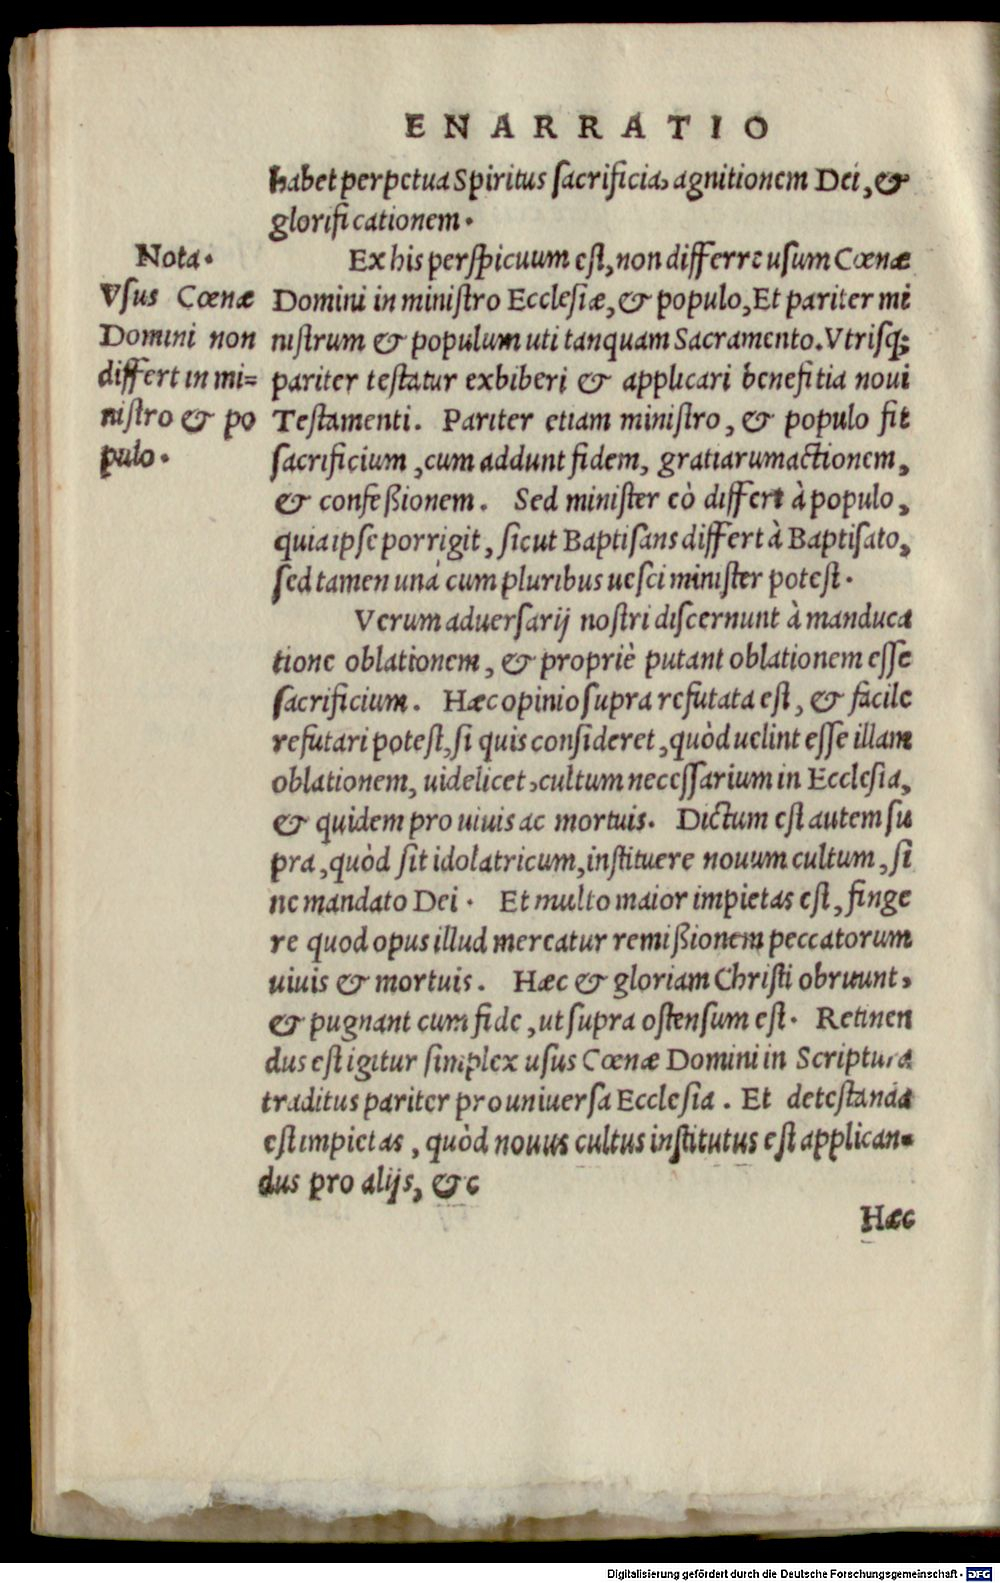 ENARRATIO
habet perpetua Spiritus sacrificia, agnitionem Dei, &
glorificationem.
Nota.
Vsus Cœnæ
Domini non
differt in mi=
nistro & po
pulo.
Ex his perspicuum est, non differre usum Cœnæ
Domini in ministro Ecclesiæ, & populo, Et pariter mi
nistrum & populum uti tanquam Sacramento. Vtrisq;
pariter testatur exbiberi & applicari benefitia noui
Testamenti. Pariter etiam ministro, & populo fit
sacrificium, cum addunt fidem, gratiarumactionem,
& confeßionem. Sed minister eò differt à populo,
quia ipse porrigit, sicut Baptisans differt à Baptisato,
sed tamen unà cum pluribus uesci minister potest.
Verum aduersarij nostri discernunt à manduca
tione oblationem, & propriè putant oblationem esse
sacrificium. Hæc opinio supra refutata est, & facile
refutari potest, si quis consideret, quòd uelint esse illam
oblationem, uidelicet, cultum necessarium in Ecclesia,
& quidem pro uiuis ac mortuis. Dictum est autem su
pra, quòd sit idolatricum, instituere nouum cultum, si
ne mandato Dei. Et multo maior impietas est, finge
re quod opus illud mereatur remißionem peccatorum
uiuis & mortuis. Hæc & gloriam Christi obruunt,
& pugnant cum fide, ut supra ostensum est. Retinen
dus est igitur simplex usus Cœnæ Domini in Scriptura
traditus pariter pro uniuersa Ecclesia. Et detestanda
est impietas, quòd nouus cultus institutus est applican=
dus pro alijs, &c
Hæc
Digitalisierung gefördert durch die Deutsche Forschungsgemeinschaft - DFG